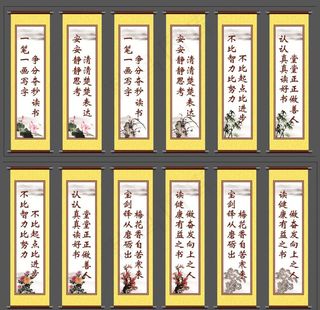 一笔一画写字
争分夺秒读书
安安静静思考
清清楚楚表达
一笔一画写字
争分夺秒读书
安安静静思考
清清楚楚表达
不比智力比努力
不比起点比进步
认认真真读好书
堂堂正正做善人
不比智力比努力
不比起点比进步
认认真真读好书
堂堂正正做善人
宝剑锋从磨砺出
梅花香自苦寒来
读健康有益之书
做奋发向上之人
宝剑锋从磨砺出
梅花香自苦寒来
读健康有益之书
做奋发向上之人